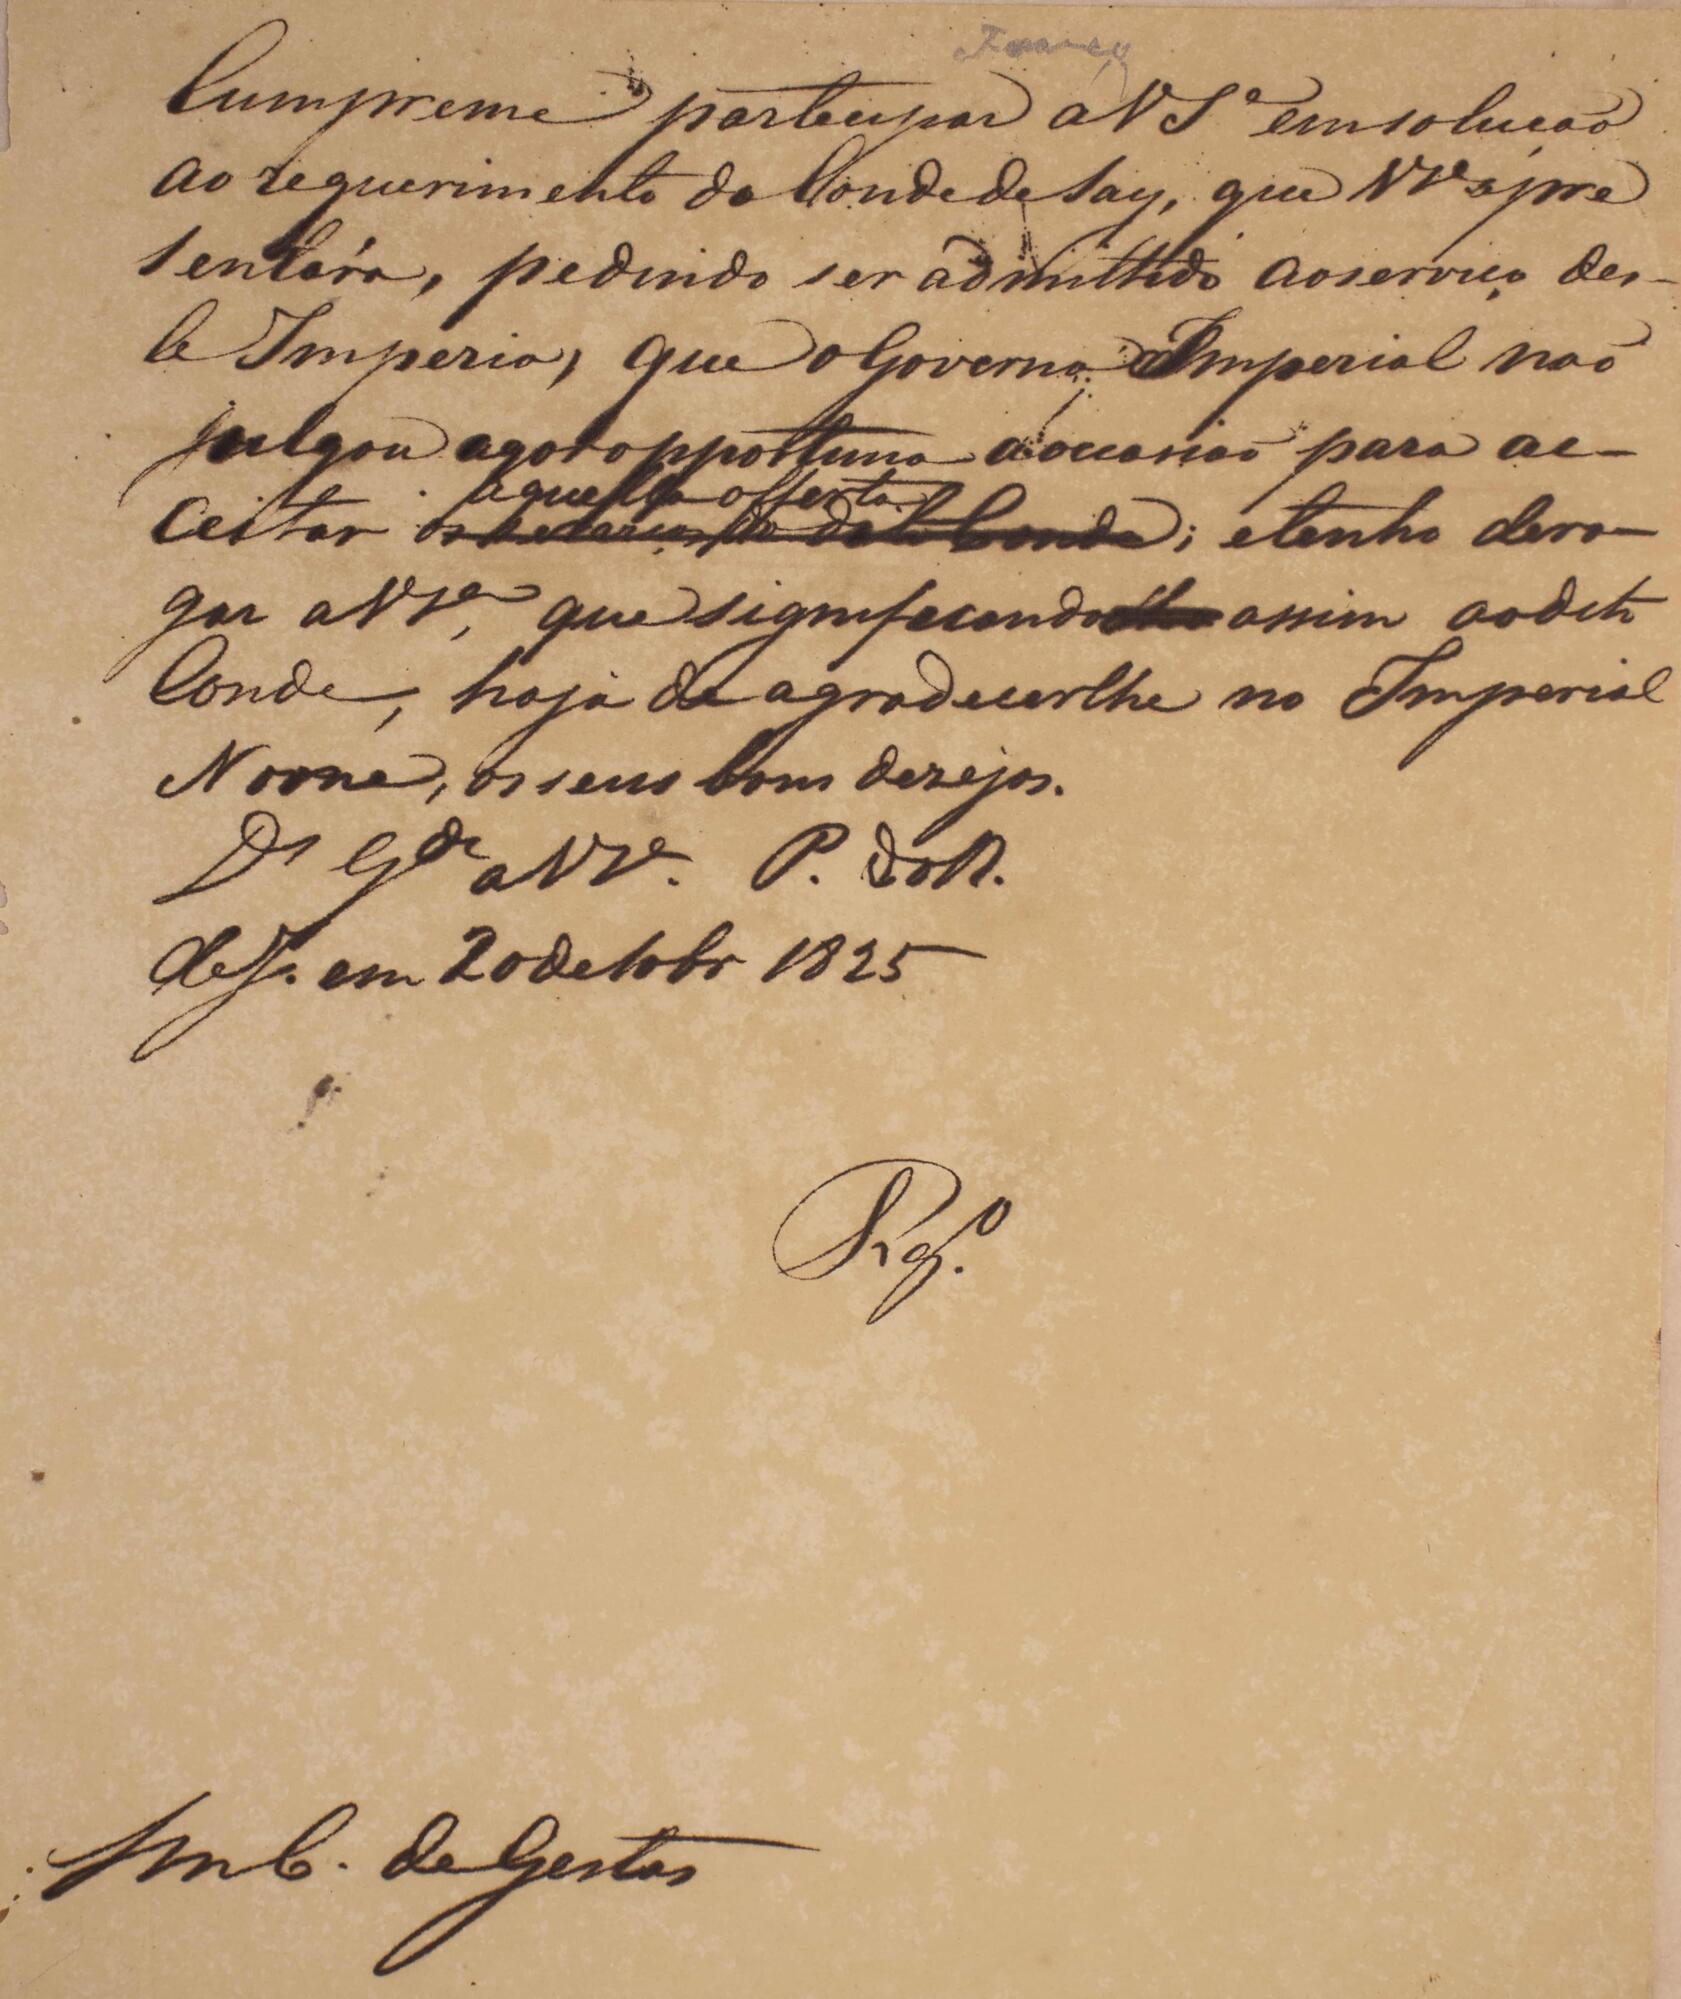 França
Cumpreme participar a V Sª em solução
ao requerimento do Conde de Say, que V Sª apre
sentára, pedindo ser admittido ao serviço des-
te Imperio, que o Governo Imperial não
julgou agora opportuna a occasião para ac-
aquella offerta
ceitar os do dito Conde; e tenho de ro-
gar a V Sª, que significando assim ao dito
Conde, haja de agradecerlhe no Imperial
Nome, os seus bons dezejos.
Ds Gde a V Sª. P. do R.
de J. em 20 de 8obr 1825
Snr C. de Gestas